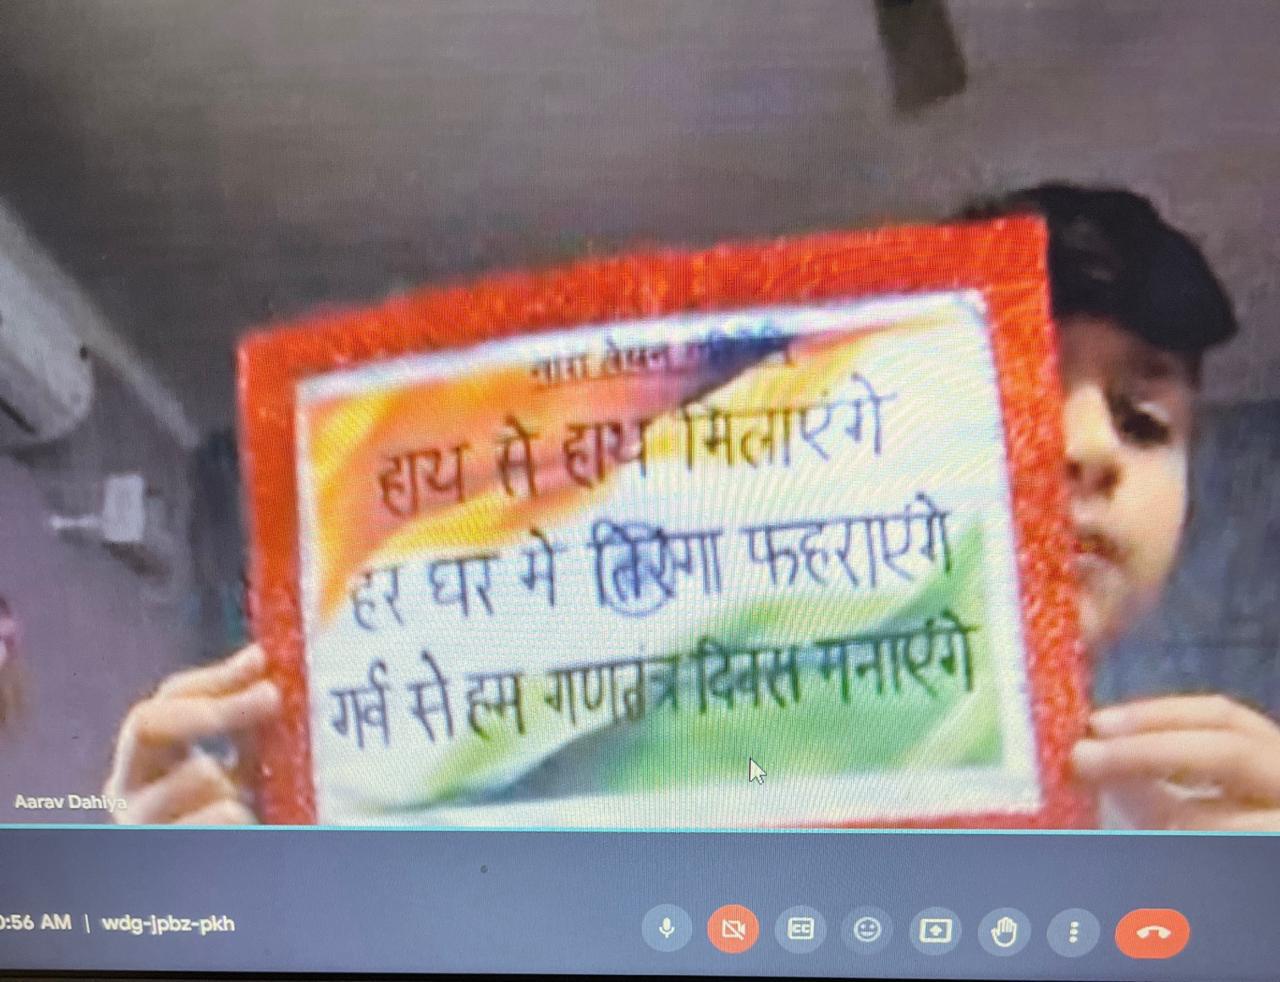 नारा लेखन
हाथ से हाथ मिलाएंगे
हर घर मे तिरंगा फहराएंगे
गर्व से हम गणतंत्र दिवस मनाएंगे
Aarav Dahiya
:56 AM | wdg-jpbz-pkh
CC